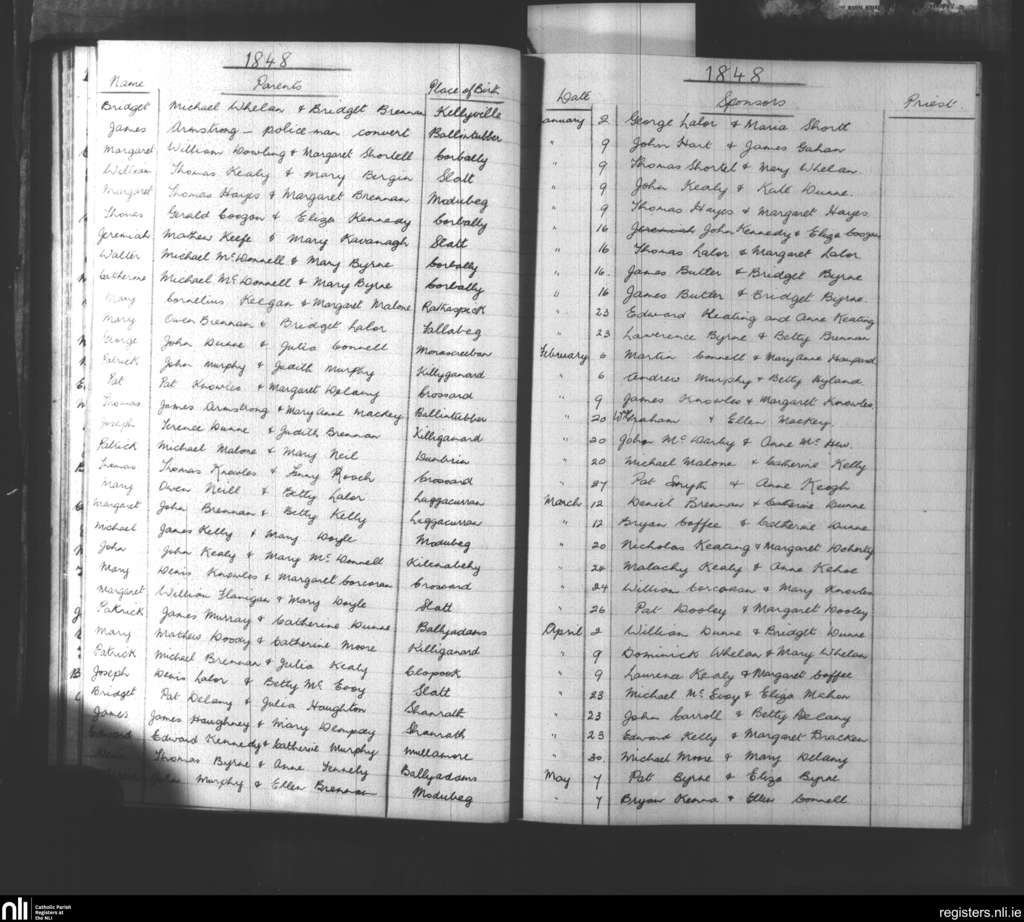 1848
Name Parents Place of Birth
Bridget Michael Whelan & Bridget Brennan Kellyville
James Armstrong - policeman convert Ballintubber
Margaret William Dowling & Margaret Shortell Corbally
William Thomas Kealy & Mary Bergin Slatt
Margaret Thomas Hayes & Margaret Brennan Modubeg
Thomas Gerald Coogan & Eliza Kennedy Corbally
Jeremiah Mathew Keefe & Mary Kavanagh Slatt
Walter Michael McDonnell & Mary Byrne Corbally
Catherine Michael McDonnell & Mary Byrne Corbally
Mary Cornelius Keegan & Margaret Malone Rathaspick
Mary Owen Brennan & Bridget Lalor Fallabeg
George John Dunne & Julia Connell Monascreeban
Patrick John Murphy & Judith Murphy Killyganard
Pat Pat Knowles & Margaret Delany Crossard
Thomas James Armstrong & Mary Anne Mackey Ballintubber
Joseph Terence Dunne & Judith Brennan Killiganard
Patrick Michael Malone & Mary Neil Dunbrin
Thomas Thomas Knowles & Fanny Roach Crossard
Mary Owen Neill & Betty Lalor Luggacurran
Margaret John Brennan & Betty Kelly Luggacurran
Michael James Kelly & Mary Doyle Modubeg
John John Kealy & Mary McDonnell Kilenabehy
Mary Denis Knowles & Margaret Corcoran Crossard
Margaret William Flanigan & Mary Doyle Slatt
Patrick James Murray & Catherine Dunne Ballyadams
Mary Mathew Doody & Catherine Moore Killiganard
Patrick Michael Brennan & Julia Kealy Clopook
Joseph Denis Lalor & Betty McEvoy Slatt
Bridget Pat Delany & Julia Haughton Shanrath
James James Haughney & Mary Dempsey Shanrath
Edward Edward Kennedy & Catherine Murphy Mullamore
Thomas Byrne & Anne Fennely Ballyadams
Murphy & Ellen Brennan Modubeg
1848
Date Sponsors Priest
January 2 George Lalor & Maria Shortt
" 9 John Hart & James Gahan
" 9 Thomas Shortel & Mary Whelan
" 9 John Kealy & Kate Dunne
" 9 Thomas Hayes & Margaret Hayes
" 16 Jeremiah John Kennedy & Eliza Coogan
" 16 Thomas Lalor & Margaret Lalor
" 16. James Butler & Bridget Byrne
" 16 James Butler & Bridget Byrne.
" 23 Edward Keating and Anne Keating
" 23 Lawrence Byrne & Betty Brennan
February 6 Martin Connell & Mary Anne Haspard
" 6 Andrew Murphy & Betty Hyland
" 9 James Knowles & Margaret Knowles
" 20 Wm Graham & Ellen Mackey.
" 20 John McDarby & Anne McHew.
" 20 Michael Malone & Catherine Kelly
" 27 Pat Smyth & Anne Keogh
March 12 Daniel Brennan & Catherine Dunne
" 12 Bryan Coffee & Catherine Dunne
" 20 Nicholas Keating & Margaret Doherty
" 24 Malachy Kealy & Anne Kehoe
" 24 William Corcoran & Mary Knowles
" 26 Pat Dooley & Margaret Dooley
April 2 William Dunne & Bridget Dunne
" 9 Dominick Whelan & Mary Whelan
" 9 Laurence Kealy & Margaret Coffee
" 23 Michael McEvoy & Eliza Mehon
" 23 John Carroll & Betty Delany
" 23 Edward Kelly & Margaret Bracken
" 30. Michael Moore & Mary Delany
May 7 Pat Byrne & Eliza Byrne
" 7 Bryan Kenna & Ellen Connell
nli Catholic Parish
Registers at
the NLI
registers.nli.ie